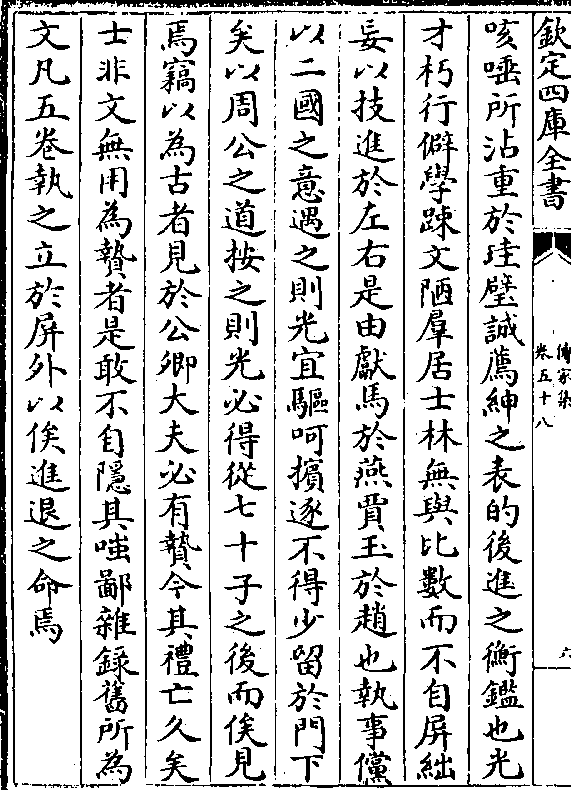 欽定四庫全書
傳家集
卷五十八
六
咳唾所沾重於珪璧誠薦紳之表的後進之衡鑑也光
才朽行僻學踈文陋羣居士林無與比數而不自屏絀
妄以技進於左右是由獻馬於燕賈玉於趙也執事儻
以二國之意遇之則光宜驅呵擯逐不得少留於門下
矣以周公之道按之則光必得從七十子之後而俟見
焉竊以為古者見於公卿大夫必有贄今其禮亡久矣
士非文無用為贄者是敢不自隱其嗤鄙雜録舊所為
文凡五卷執之立於屏外以俟進退之命焉